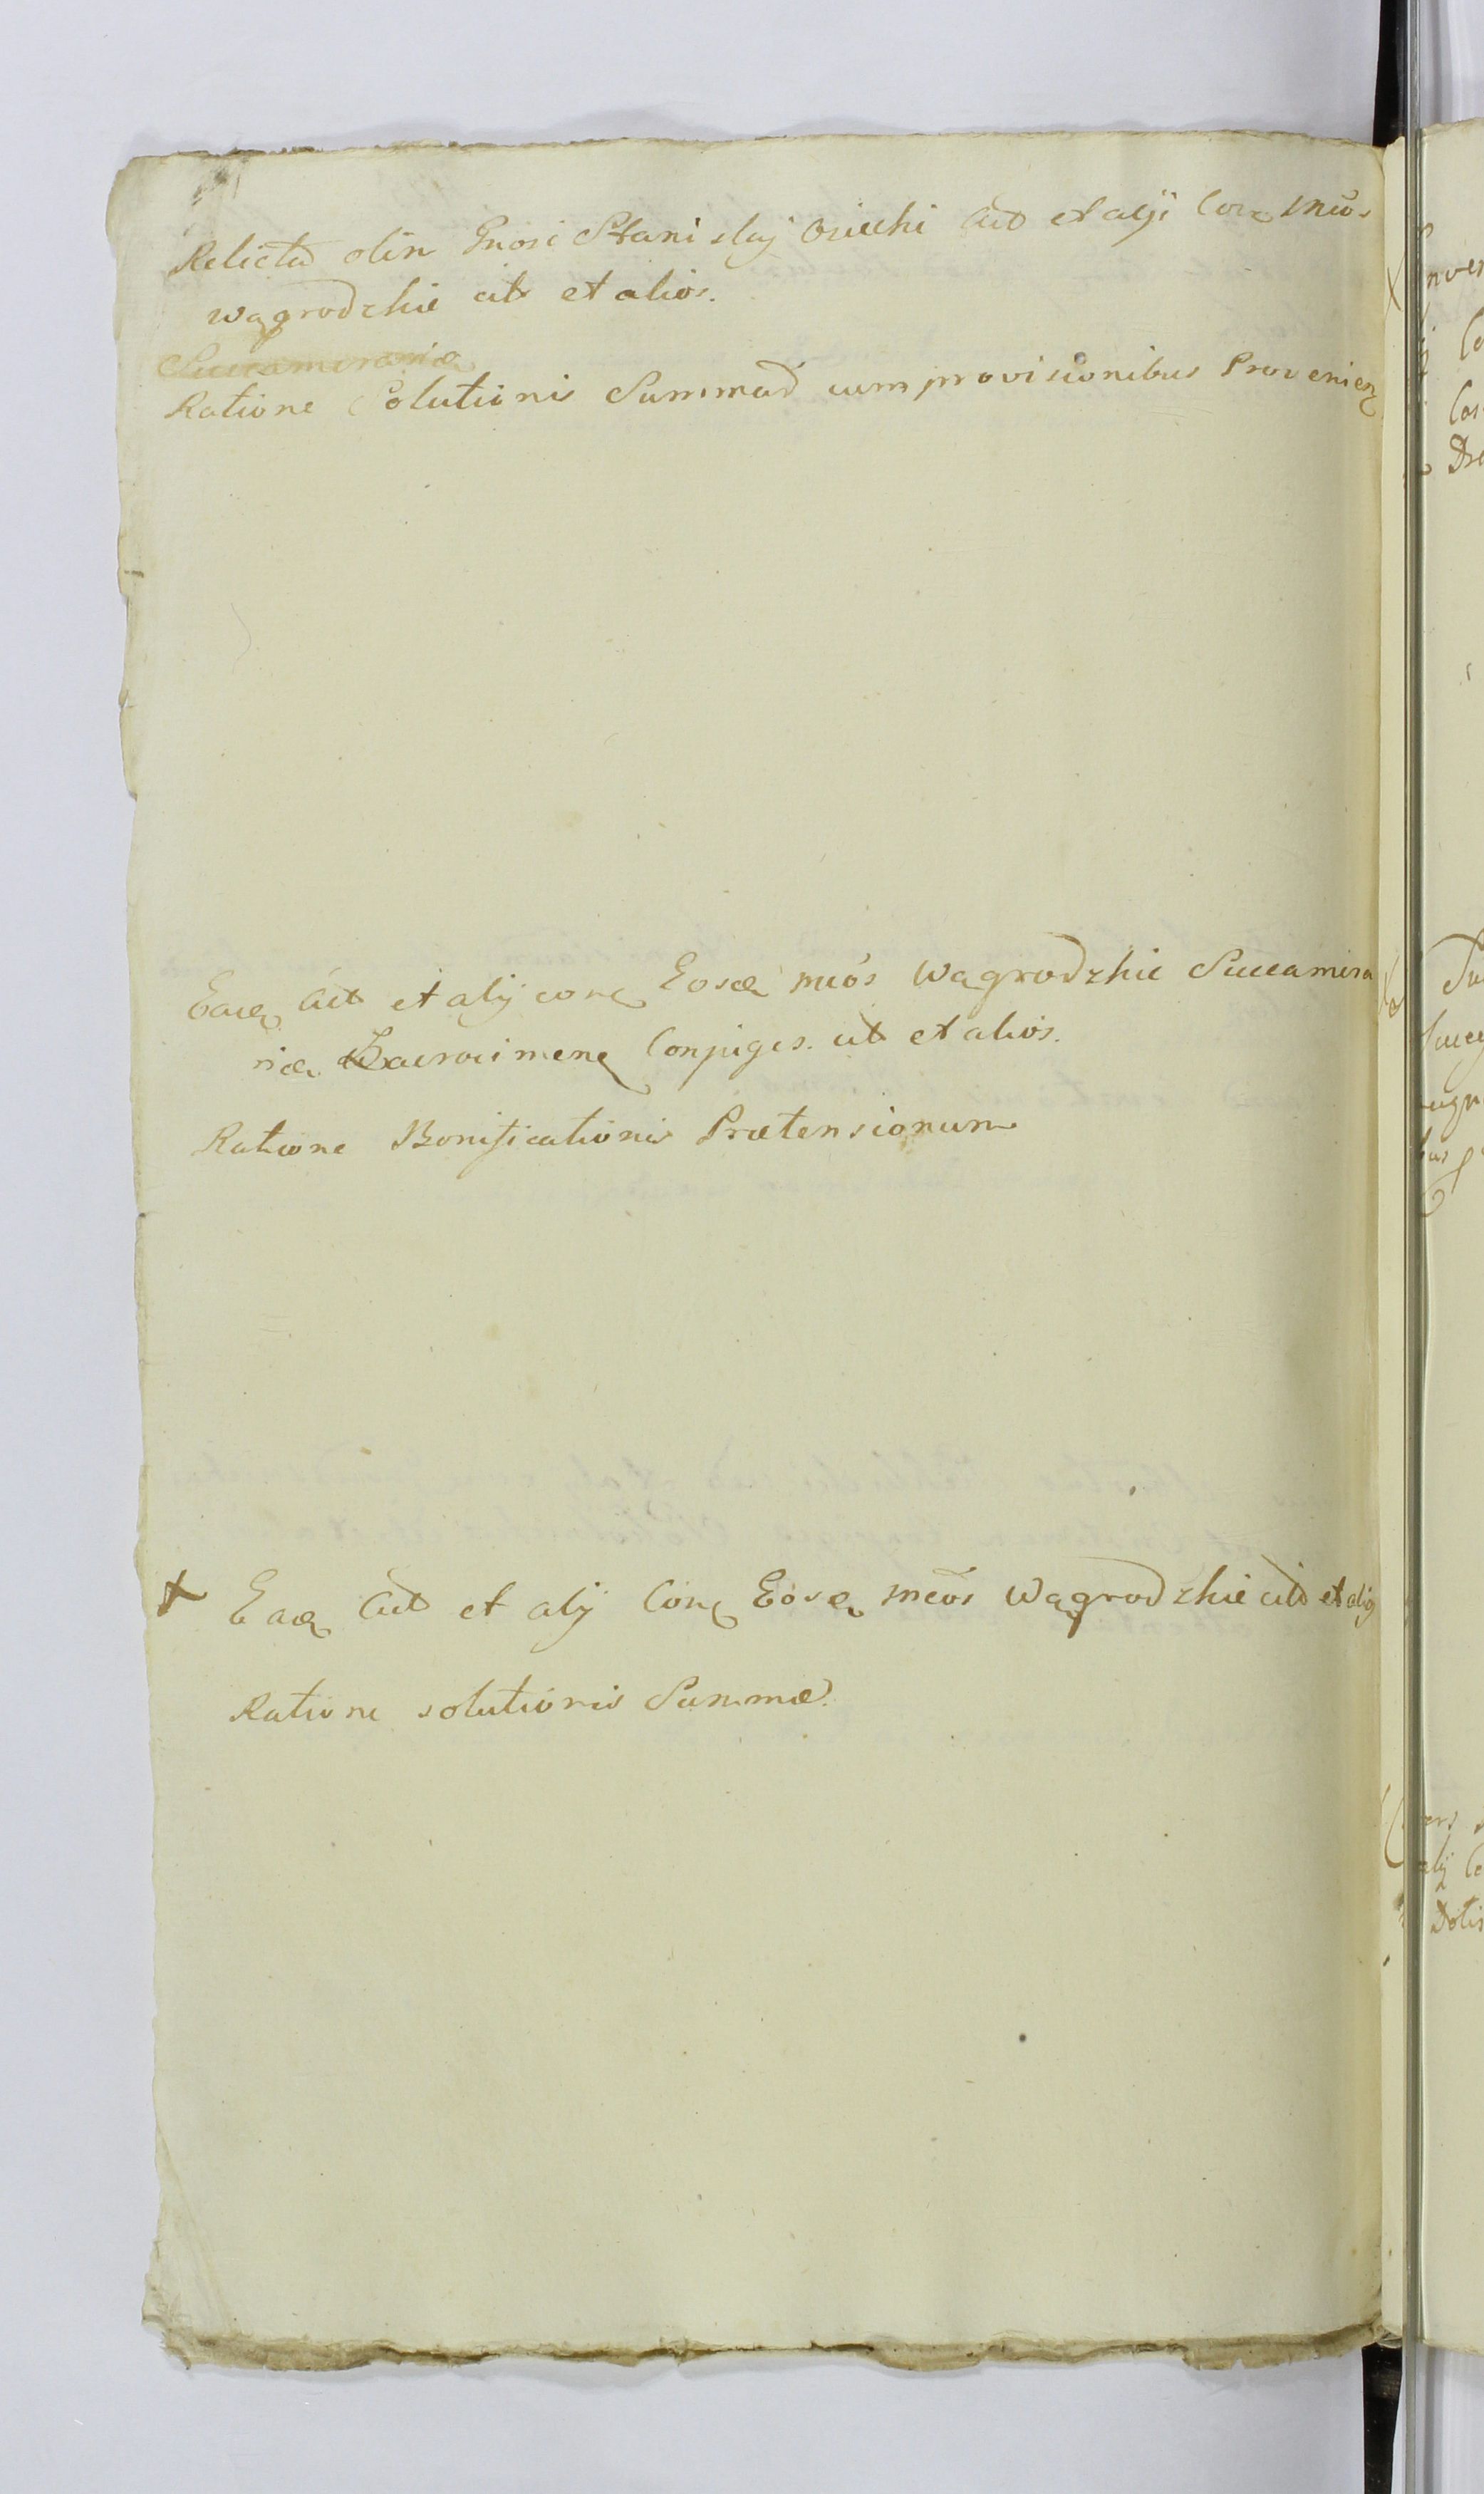 Relicta olim Gnosi Stanislaj Osiecki Aut et alÿi Con Mũos
Wągrodzkie cit et alios.
Succamerariæ
Ratione Solutionis Summæ cum provisionibus Provenien
Eadem Act et alÿ con Eosd mũos Wągrodzkie Succamera
riæ Zacroczimenę Conjuges. cit et alios.
Ratione Bonificationis Prætensionum
+ Ead Act et alÿ Con Eosd mũos Wągrodzkie cit et alios
Ratione solutionis Summæ.